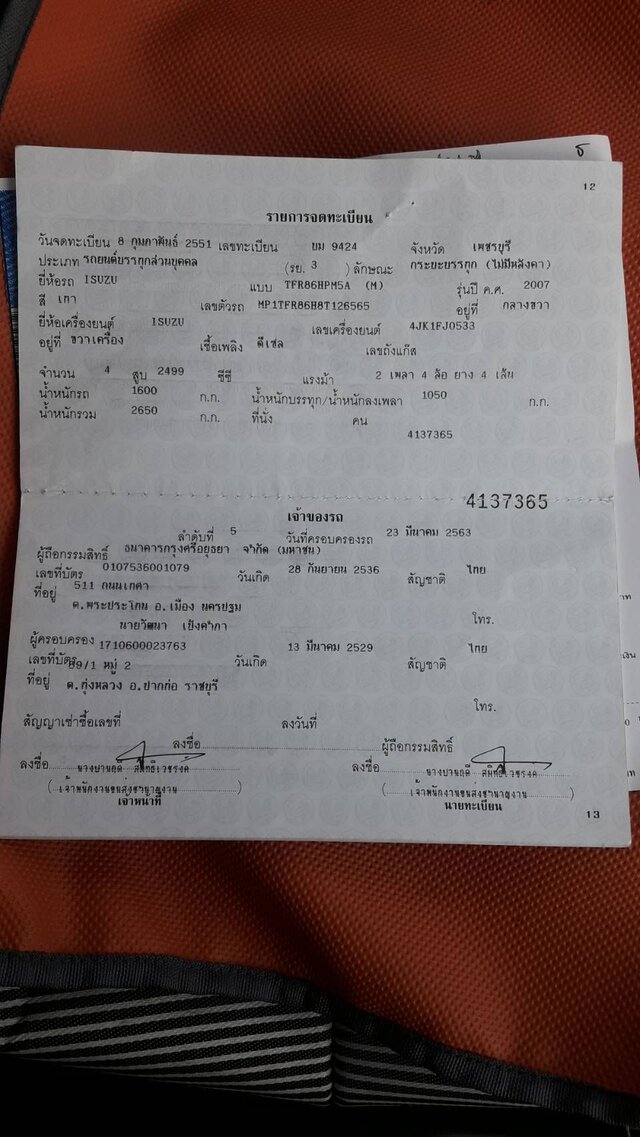 12
รายการจดทะเบียน
วันจดทะเบียน 8 กุมภาพันธ์ 2551 เลขทะเบียน บม 9424 จังหวัด เพชรบุรี
ประเภท รถยนต์บรรทุกส่วนบุคคล (รย. 3 ) ลักษณะ กระบะบรรทุก (ไม่มีหลังคา)
ยี่ห้อรถ ISUZU แบบ TFR86HPM5A (M) รุ่นปี ค.ศ. 2007
สี เทา เลขตัวรถ MP1TFR86H8T126565 อยู่ที่ กลางขวา
ยี่ห้อเครื่องยนต์ ISUZU เลขเครื่องยนต์ 4JK1FJ0533
อยู่ที่ ขวาเครื่อง เชื้อเพลิง ดีเซล เลขถังแก๊ส
จำนวน 4 สูบ 2499 ซีซี แรงม้า 2 เพลา 4 ล้อ ยาง 4 เส้น
น้ำหนักรถ 1600 ก.ก. น้ำหนักบรรทุก/น้ำหนักลงเพลา 1050 ก.ก.
น้ำหนักรวม 2650 ก.ก. ที่นั่ง คน
4137365
4137365
เจ้าของรถ
ลำดับที่ 5 วันที่ครอบครองรถ 23 มีนาคม 2563
ผู้ถือกรรมสิทธิ์ ธนาคารกรุงศรีอยุธยา จำกัด (มหาชน)
เลขที่บัตร 0107536001079 วันเกิด 28 กันยายน 2536 สัญชาติ ไทย
ที่อยู่ 511 ถนนเทศา
ต.พระประโทน อ.เมือง นครปฐม
นายวัฒนา โทร.
ผู้ครอบครอง
เลขที่บัตร 1710600023763 วันเกิด 13 มีนาคม 2529 สัญชาติ ไทย
ที่อยู่ 89/1 หมู่ 2
ต.ทุ่งหลวง อ.ปากท่อ ราชบุรี
โทร.
สัญญาเช่าซื้อเลขที่ ลงวันที่
ลงชื่อ ผู้ถือกรรมสิทธิ์
ลงชื่อ ลงชื่อ
(เจ้าพนักงานขนส่งชำนาญงาน) (เจ้าพนักงานขนส่งชำนาญงาน)
เจ้าหน้าที่ นายทะเบียน
13